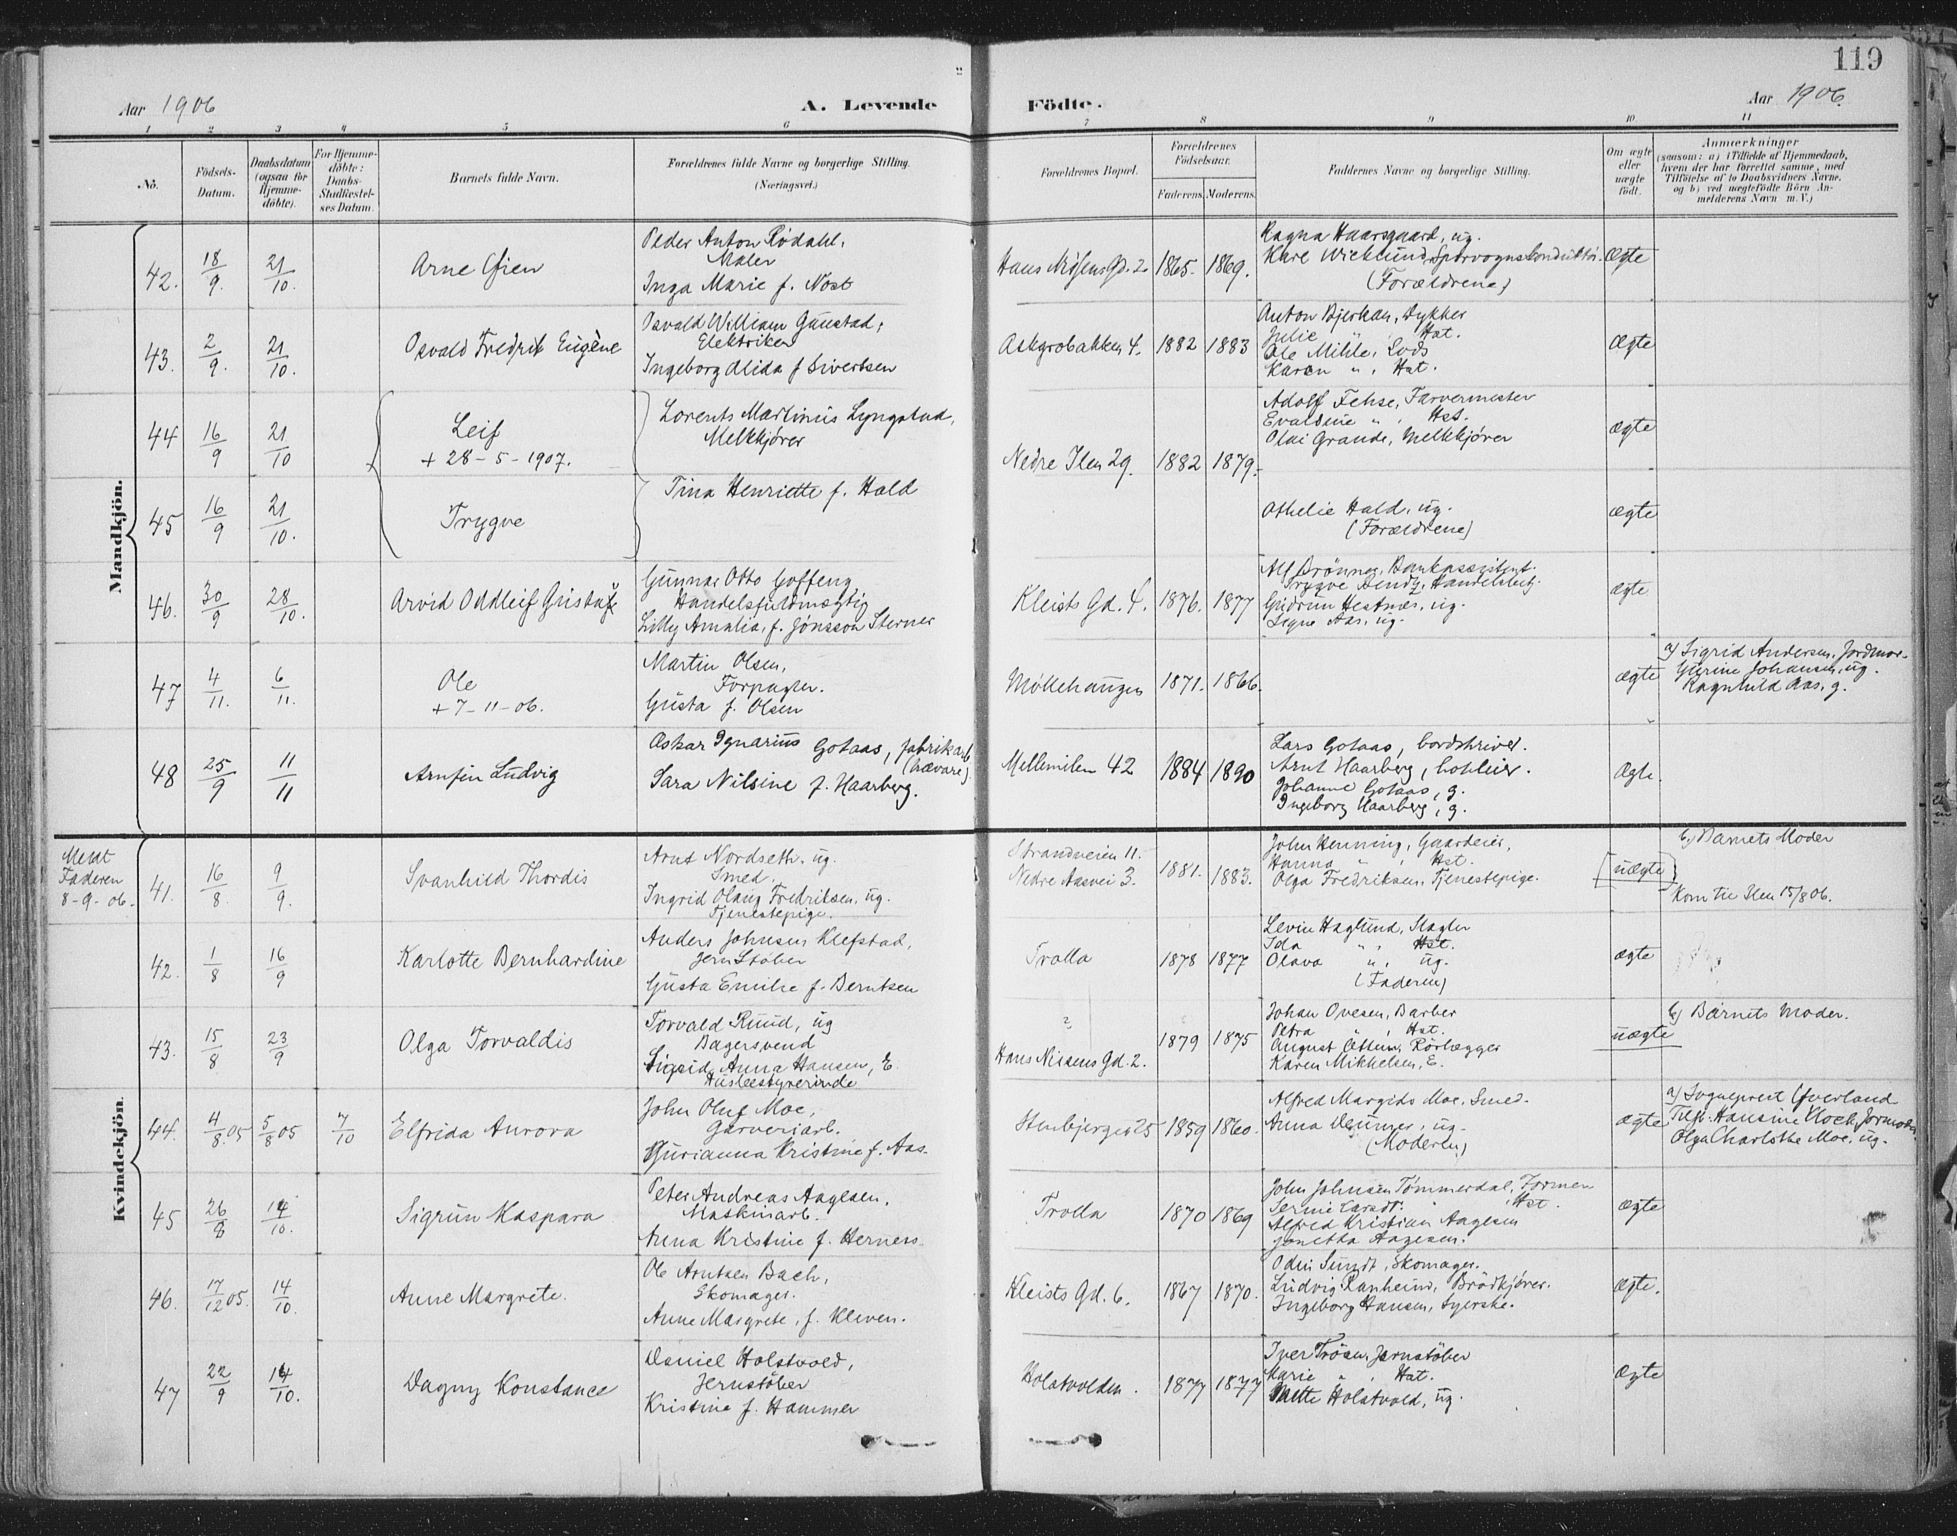 119
Aar 1906
A. Levende
Födte.
Aar 1906.
1 2 3 4 5 6 7 8 9 10 11
No.
Födsels-
Datum.
Daabsdatum
(ogsaa for
Hjemme-
döbte).
For Hjemme-
döbte:
Daabs-
Stadfæstel-
ses Datum.
Barnets fulde Navn.
Forældrenes fulde Navne og borgerlige Stilling.
(Næringsvei.)
Forældrenes Bopæl.
Forældrenes
Födselsaar.
Faderens. Moderens.
Faddernes Navne og borgerlige Stilling.
Om ægte
eller
uægte
födt.
Anmærkninger
(saasom: a) i Tilfælde af Hjemmedaab,
hvem der har forrettet samme, med
Tilföielse af to Daabsvidners Navne,
og b) ved uægtefödte Börn An-
melderens Navn m. V.)
Mandkjön.
42. 18/9. 21/10. Arne Gien
Peder Anton Rødahl,
Maler
Inga Marie f. Nost
Hans Nissens Gd. 2. 1865. 1869.
Ragna Haarsgaard, ug.
Kare Wicklund, Sporvognskonduktör.
(Forældrene)
ægte
43. 2/9. 21/10. Osvald Fredrik Eugène
Osvald William Gunstad,
Elektriker
Ingeborg Alida f Sivertsen
Askgrobakken 4. 1882 1883
Anton Bjerkan, Dykker
Julie " , Hst.
Ole Mihle, Lods
Karen " , Hst.
ægte
44 16/9 21/10 Leif
+ 28-5-1907.
Lorents Martinus Lyngstad,
Melkkjører
Nedre Ilen 29. 1882 1879.
Adolf Fehse, Farvermester
Evaldine " , Hst.
Olai Grande, Melkkjører
ægte
45 16/9 21/10. Trygve
Tina Henriette f. Hald
Othelie Hald, ug.
(Forældrene)
ægte
46. 30/9 28/10. Arvid Oddleif Gustaf
Gunnar Otto Goffeng
Handelsfuldmægtig
Lilly Amalia, f. Jönsson Sterner
Kleists Gd. 4. 1876. 1877
Alf Brönner, Bankassistent.
Trygve Bendz, Handelsbetj.
Gudrun Hestnæs, ug.
Signe Aas, ug.
ægte
47 4/11. 6/11. Ole
+ 7-11-06.
Martin Olsen,
Forpagter.
Gusta f. Olsen
Möllehaugen 1871. 1866.
ægte
a) Sigrid Andersen, Jordmor.
Gurine Johansen, ug.
Ragnhild Aas, g.
48 25/9 11/11 Arnfin Ludvig
Oskar Ignarius Gotaas, fabrikarb.
(hævare)
Sara Nilsine f. Haarberg.
Mellemilen 42 1884 1890
Lars Gotaas, bordskriver.
Arnt Haarberg,
Johanne Gotaas, g.
Ingeborg Haarberg, g.
Ægte.
Kvindekjön.
Meldt
Faderen
8-9-06.
41. 16/8. 9/9. Svanhild Thordis
Arnt Nordseth, ug.
Smed.
Ingrid Olaug Fredriksen, ug.
Tjenestepige.
Strandveien 11.
Nedre Aasvei 3. 1881. 1883.
John Henning, Gaardeier,
Hanna " , Hst.
Olga Fredriksen, Tjenestepige.
uægte
b.) Barnets Moder
Kom til Ilen 15/8 06.
42. 1/8 16/9 Karlotte Bernhardine
Anders Johnsen Klefstad,
Jernstöber
Gusta Emilie f. Berntsen
Trolla 1878 1877
Levin Haglund, Slagter
Ida " , Hst.
Olava " , ug.
(Faderen)
ægte
43. 15/8 23/9 Olga Torvaldis
Torvald Ruud, ug
Bagersvend
Sigrid Anna Hansen, E.
Husbestyrerinde
?
Hans Nissens Gd. 2. 1879 1875
Johan Ovesen, Barber
Petra " , Hst.
August Ottem, Rörlægger
Karen Mikkelsen, E.
uægte
b) Barnets Moder.
44. 4/8 05 5/8 05 7/10 Elfrida Aurora
John Oluf Moe,
Garveriarb.
Gurianna Kristine f. Aas.
Stenbjerget 25 1859 1860.
Alfred Margido Moe, Smed.
Anna , ug.
(Moderen)
ægte
a) Sogneprest Öfverland
Tilst. Hansine Klock, Jormoder
Olga Charlotte Moe, ug.
45 26/8 14/10. Sigrun Kaspara
Peter Andreas Aagesen,
Maskinarb.
Anna Kristine f. Herness.
Trolla 1870 1869
John Johnsen Tömmerdal, Former
Serine Larsdt. , Hst.
Alfred Kristian Aagesen
Jonetta Aagesen.
ægte
46. 17/12 05. 14/10. Anne Margrete.
Ole Arntsen Bach,
Skomager.
Anne Margrete, f. Kleven.
Kleists Gd. 6. 1867 1870.
Odin Sundt, Skomager.
Ludvig Ranheim, Brödkjörer.
Ingeborg Hansen, Syerske.
ægte.
47 22/9 14/10. Dagny Konstance
Daniel Holstvold,
Jernstöber
Kristine f. Hammer
Holstvolden. 1877 1877
Iver Tröen, Jernstöber
Marie " , Hst.
Mette Holstvold, ug.
ægte